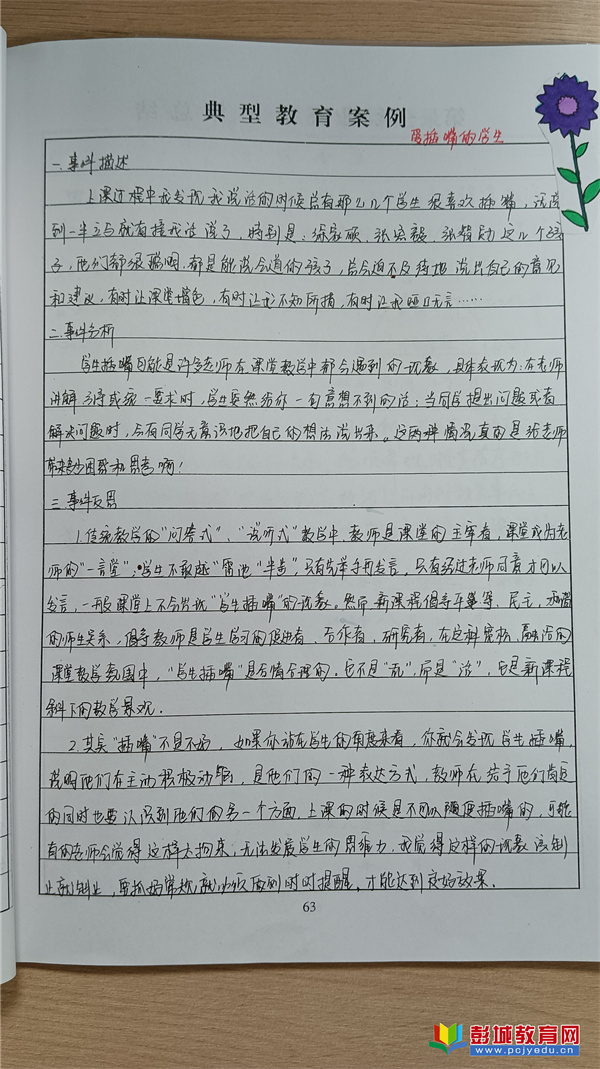 典型教育案例
爱插嘴的学生
一.事件描述
上课过程中我发现我说话的时候总有那么几个学生很喜欢插嘴，话说
到一半立马就有接我话说了，特别是：徐家硕，张宸毅，张 这几个孩
子，他们都很聪明，都是能说会道的孩子，总会迫不及待地说出自己的意见
和建议，有时让课堂增色，有时让我不知所措，有时让我哑口无言……
二.事件分析
学生插嘴可能是许多老师在课堂教学中都会遇到的现象，具体表现为：在老师
讲解 或统一要求时，学生突然给你一句意想不到的话；当同学提出问题或者
解决问题时，会有同学无意识地把自己的想法说出来。这两种情况真的是给老师
带来 困惑和思考啊！
三.事件反思
1.传统教学的“问答式”、“说听式”教学中，教师是课堂的主宰者，课堂成为老
师的“一言堂”，学生不敢越“雷池”半步，只有先举手再发言，只有经过老师同意才可以
发言，一般课堂上不会出现“学生插嘴”的现象。然而新课程倡导平等、民主，和谐
的师生关系，倡导教师是学生学习的促进者、合作者，研究者，在这种宽松，融洽的
课堂教学氛围中，“学生插嘴”是合情合理的。它不是“乱”，而是“活”，它是新课程
下的教学景观.
2.其实“插嘴”不是不好，如果你站在学生的角度来看，你就会发现学生插嘴，
说明他们在主动积极动脑，是他们的一种表达方式，教师在给予他们肯定
的同时也要认识到他们的另一个方面，上课的时候是不可以随便插嘴的，可能
有的老师会觉得这样太拘束，无法发展学生的思维力，我觉得这样的现象该制
止就制止，要抓好常规就必须做到时时提醒，才能达到良好效果.
63
彭城教育网
www.pcjyedu.cn